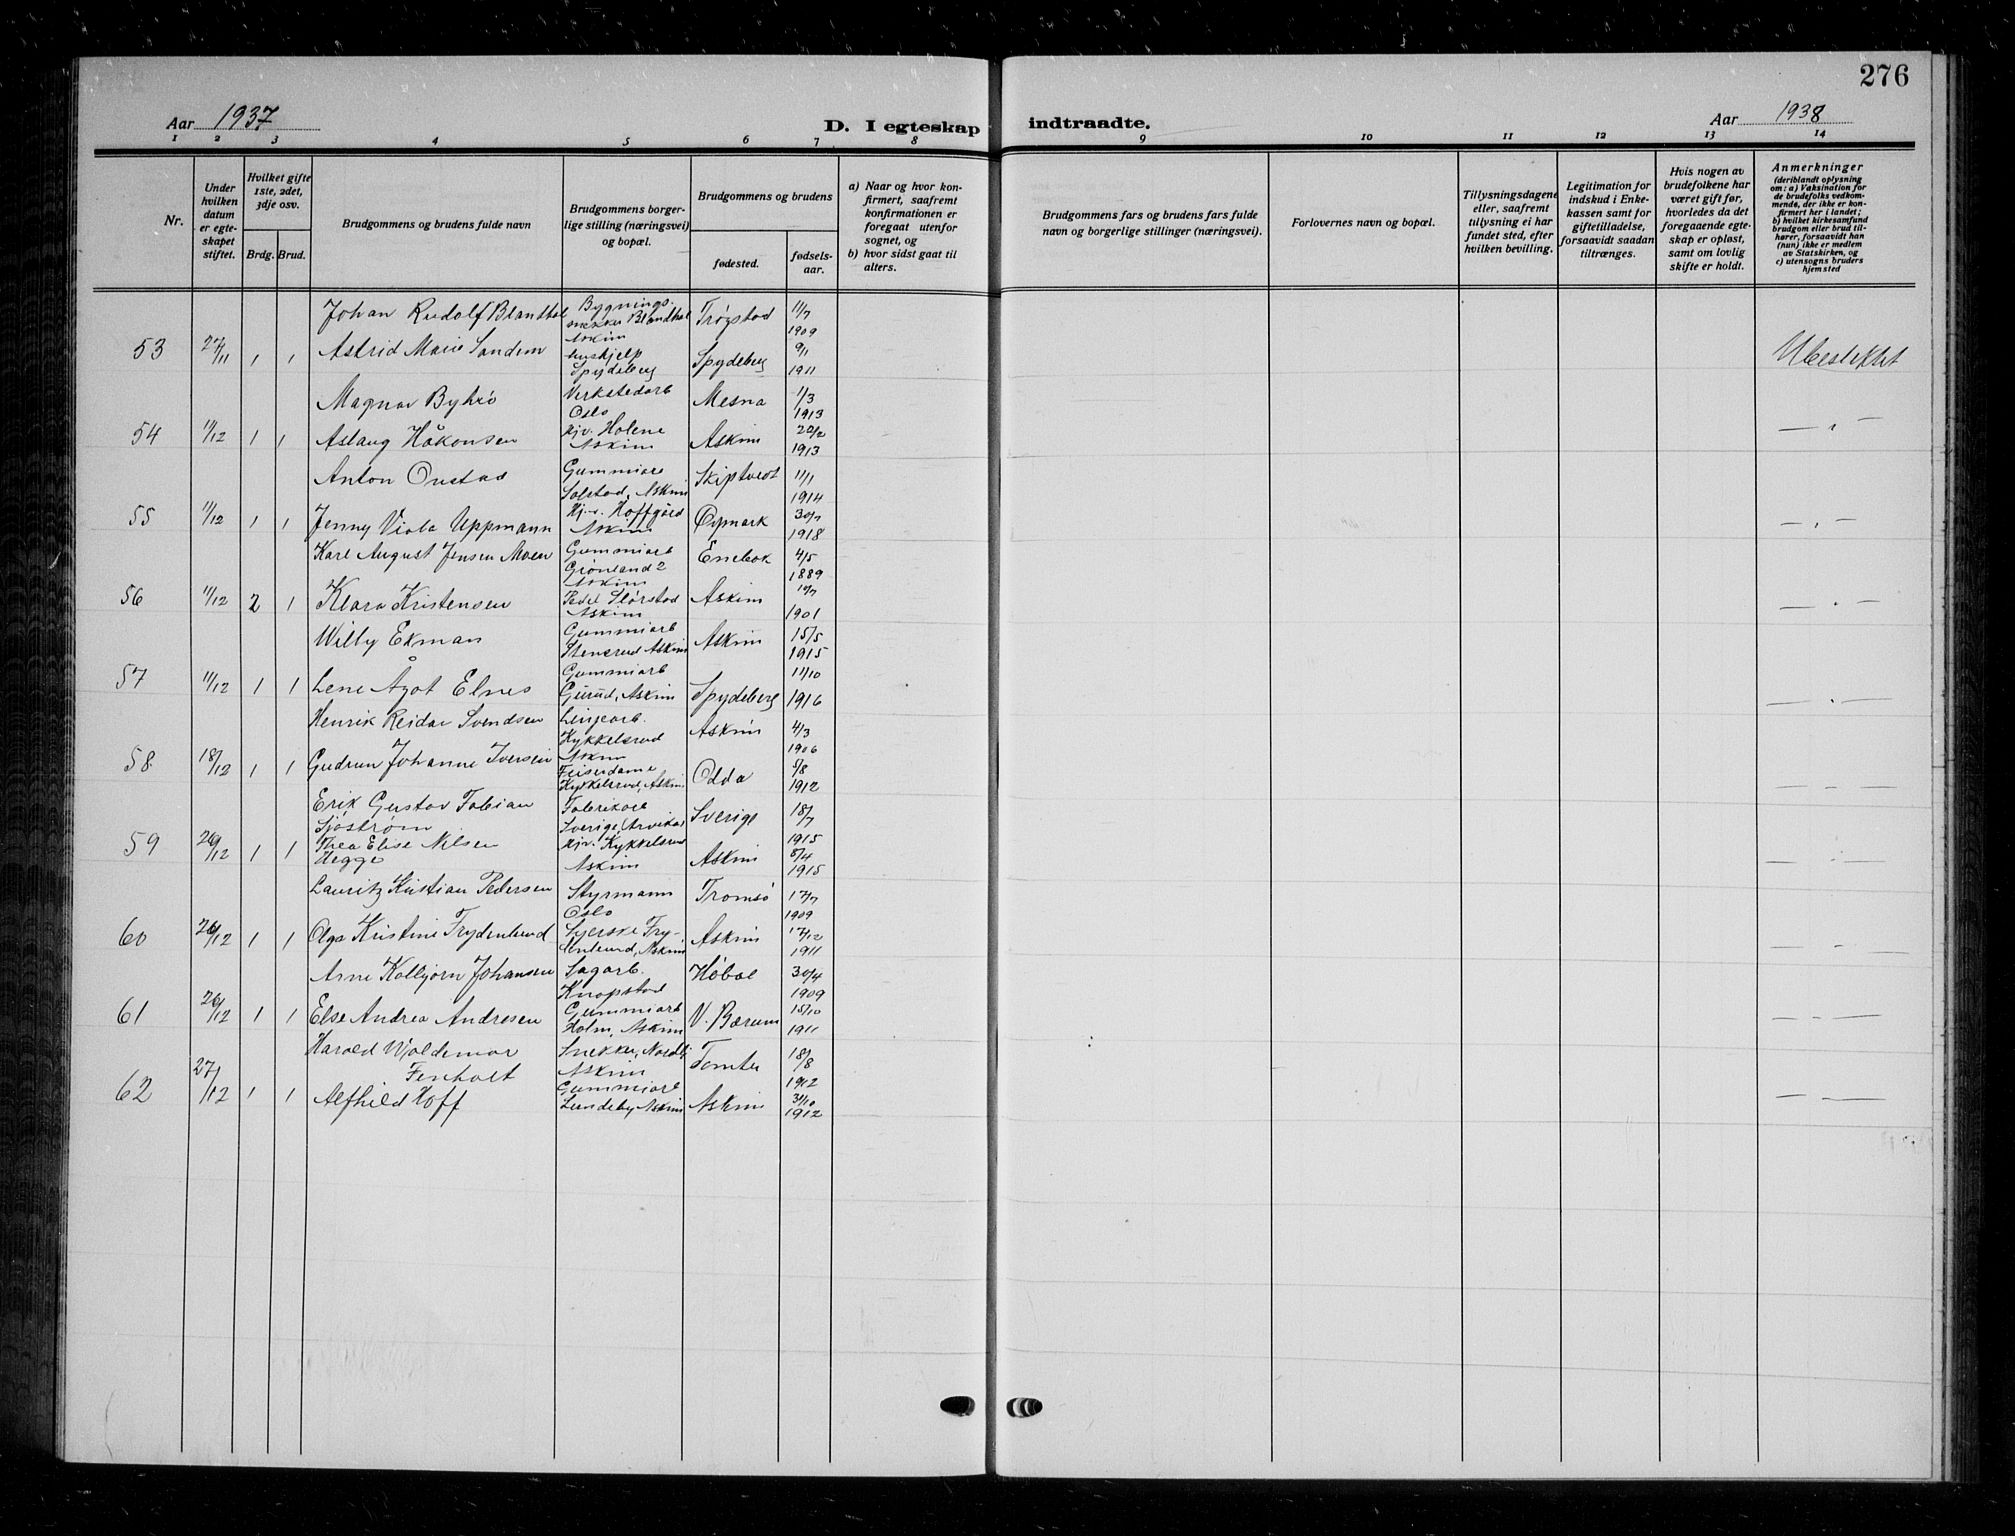 276
Aar 1937
D. I egteskap indtraadte.
Aar 1938
1 2 3 4 5 6 7 8 9 10 11 12 13 14
Nr.
Under hvilken datum er egteskapet stiftet.
Hvilket gifte 1ste, 2det, 3dje osv.
Brdg. Brud.
Brudgommens og brudens fulde navn
Brudgommens borgerlige stilling (næringsvei) og bopæl.
Brudgommens og brudens
fødested.
fødselsaar.
a) Naar og hvor konfirmert, saafremt konfirmationen er foregaat utenfor sognet, og
b) hvor sidst gaat til alters.
Brudgommens fars og brudens fars fulde navn og borgerlige stillinger (næringsvei).
Forlovernes navn og bopæl.
Tillysningsdagene eller, saafremt tillysning ei har fundet sted, efter hvilken bevilling.
Legitimation for indskud i Enkekassen samt for giftetilladelse, forsaavidt saadan tiltrænges.
Hvis nogen av brudefolkene har været gift før, hvorledes da det foregaaende egteskap er opløst, samt om lovlig skifte er holdt.
Anmerkninger
(deriblandt oplysning om: a) Vaksination for de brudefolks vedkommende, der ikke er konfirmert her i landet; b) hvilket kirkesamfund brudgom eller brud tilhører, forsaavidt han (hun) ikke er medlem av Statskirken, og c) utensogns bruders hjemsted
Johan Rudolf Blandhol Bygningssnekker Blandhol Askim Trøgstad 11/7 1909
53 27/11 1 1 Astrid Marie Sandem Hushjelp Spydeberg Spydeberg 9/1 1911 Ubeslektet
Magnar Verkstedarb Oslo Mesna 1/3 1913
54 11/12 1 1 Aslaug Håkonsen Hjv. Holene Askim Askim 20/2 1913 — " —
Anton Onstad Gummiarb Solstad, Askim Skiptvedt 11/1 1914
55 11/12 1 1 Jenny Viola Uppmann Hj.v. Hoffgård Askim Øymark 30/7 1918 — " —
Karl August Jensen Moen Gummiarb Grönland 2 Askim Enebak 4/5 1889
56 11/12 2 1 Klara Kristensen Slørstad Askim Askim 1901 — " —
Willy Ekman Gummiarb Stensrud Askim Askim 15/5 1915
57 11/12 1 1 Lene Ågot Elnes Gummiarb Gurud, Askim Spydeberg 11/10 1916 — " —
Henrik Reidar Svendsen Linjearb. Kykkelsrud Askim Askim 4/3 1906
58 18/12 1 1 Gudrun Johanne Iversen Feiserdame Kykkelsrud, Askim Odda 5/8 1912 — " —
Erik Gustav Fabian Sjöström Fabrikarb Sverige, (Arvika) Sverige 18/7 1915
59 26/12 1 1 Thea Elise Nilsen Hegge Hjv. Kykkelsrud Askim Askim 8/4 1915 — " —
Lauritz Kristian Pedersen Styrmann Oslo Tromsö 17/7 1909
60 26/12 1 1 Olga Kristine Frydenlund Syerske Frydenlund, Askim Askim 17/12 1911 — " —
Arne Kolbjørn Johansen Sagarb. Knapstad Høbøl 30/4 1909
61 26/12 1 1 Else Andrea Andresen Gummiarb Holm, Askim V. Bærum 15/10 1911 — " —
Harald Valdemar Fenholt Snekker, Nordli Askim Tomter 18/8 1912
62 27/12 1 1 Alfhild Hoff Gummiarb Lundeby Askim Askim 31/10 1912 — " —